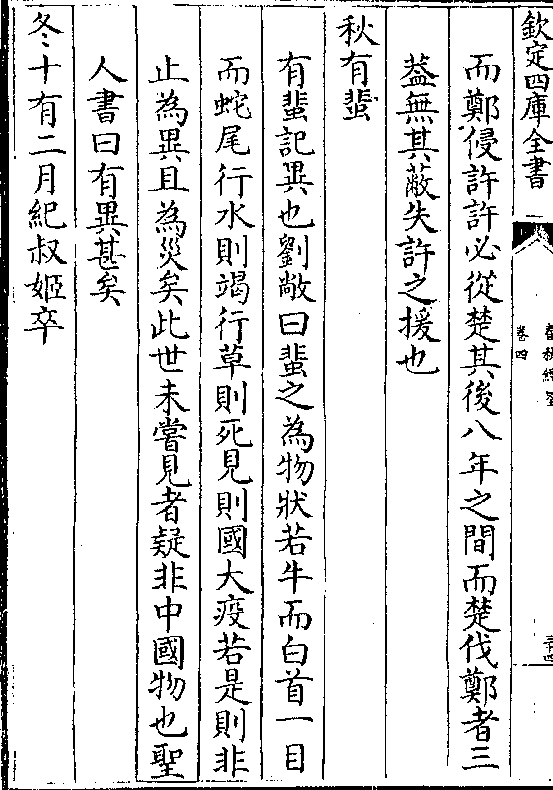 欽定四庫全書
卷四
而鄭侵許許必從楚其後八年之間而楚伐鄭者三
葢無其蔽失許之援也
秋有蜚
有蜚記異也劉敞曰蜚之為物狀若牛而白首一目
而蛇尾行水則竭行草則死見則國大疫若是則非
止為異且為災矣此世未嘗見者疑非中國物也聖
人書曰有異甚矣
冬十有二月紀叔姬卒